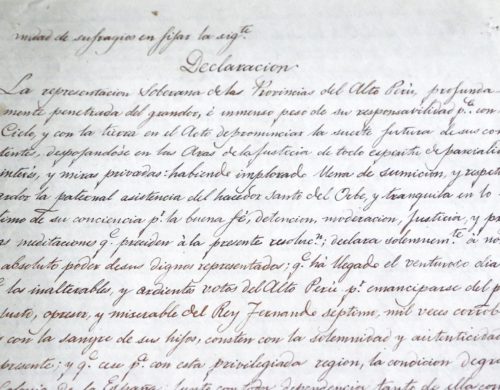 midad de sufragios en fijar la sigte
Declaracion
La representacion Soberana de las Provincias del Alto Perú, profunda
mente penetrada del grandor, é inmenso peso de su responsabilidad pa. con
Cielo, y con la tierra en el Acto de pronunciar la suerte futura de sus co
tentes, despojandose en las Aras de la justicia de todo espiritu de parcialid
interés, y miras privadas: habiendo implorado llena de sumicion, y respet
ardor la paternal asistencia del hacedor santo del Orbe, y tranquila en lo
timo de su conciencia pr. la buena fé, detencion, moderacion, justicia, y pr
as meditaciones qe. preciden à la presente resolun.; declara solemnemte. à no
absoluto poder de sus dignos representados; qe. há llegado el venturoso dia
los inalterables, y ardientes votos del Alto Perú, pr. emanciparse del p
usto, opresor, y miserable del Rey Fernando septimo, mil veces corrob
con la sangre de sus hijos, consten con la solemnidad, y autenticidad
presente; y qe. cese pa. con esta privilegiada region, la condicion degra
Colonia de la España, junto con toda dependencia tanto de ella